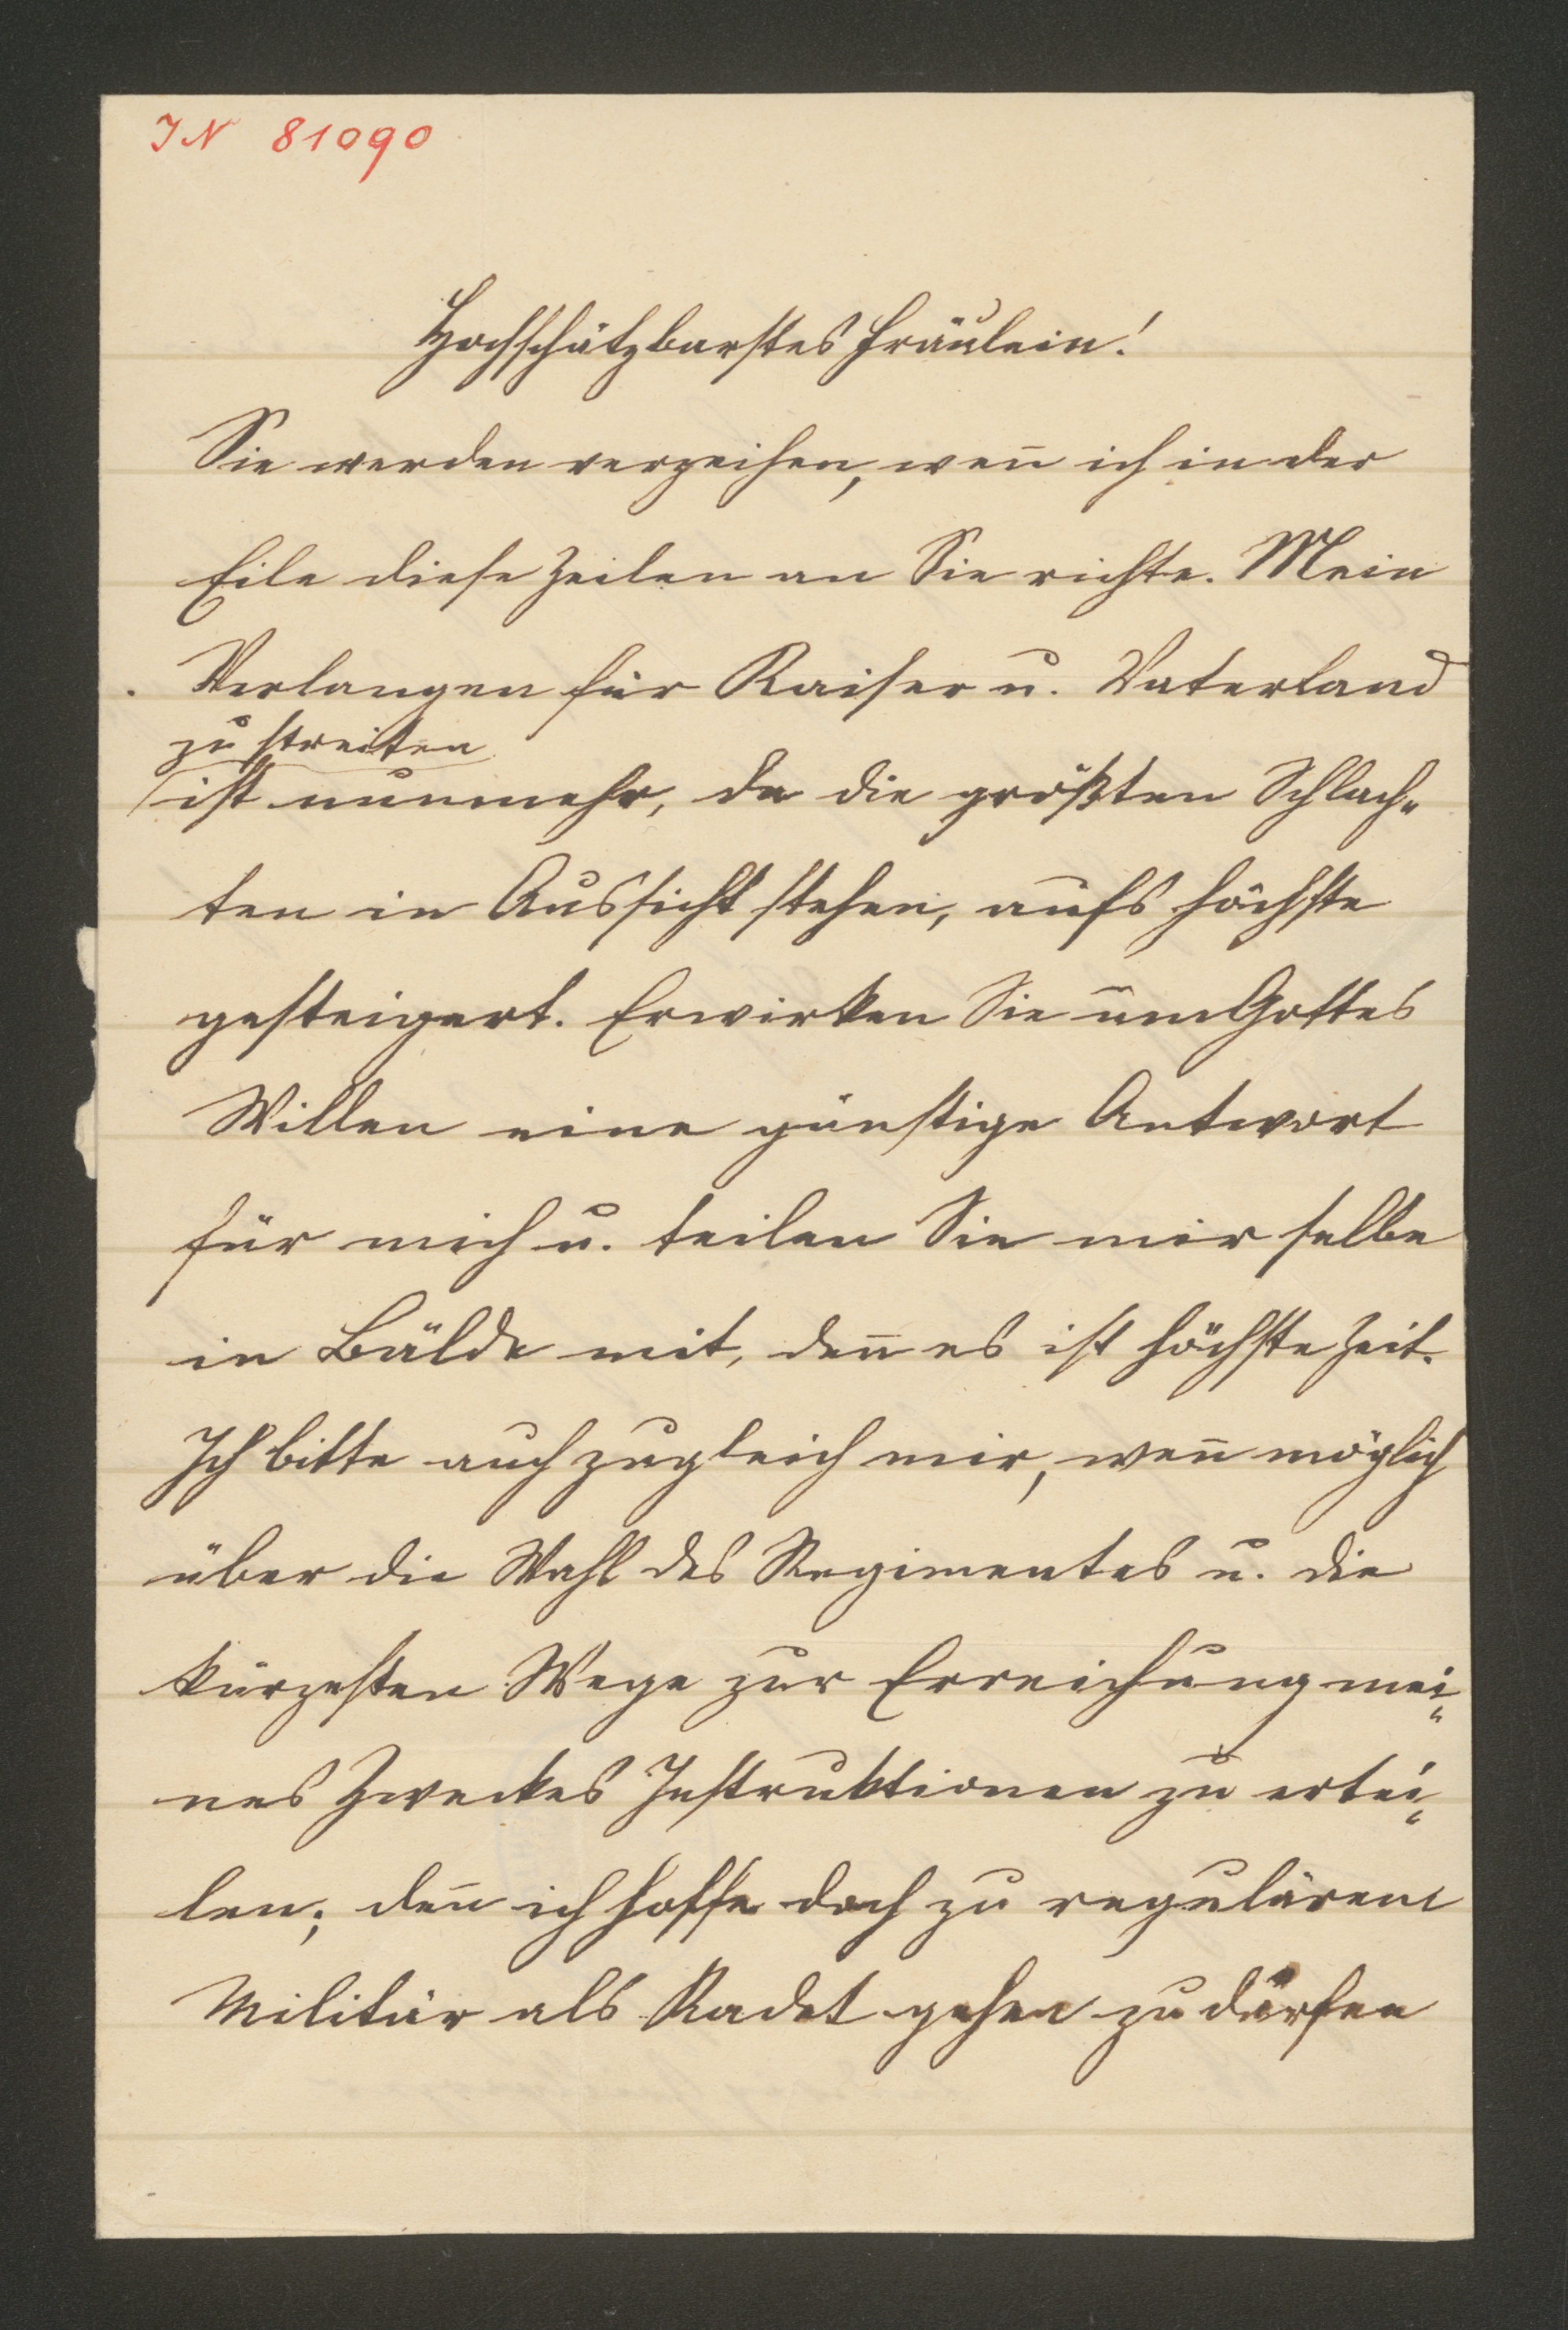 IN 81090
Hochschätzbarstes Fräulein!
Sie werden verzeihen, wen̄ ich in der
Eile diese Zeilen an Sie richte. Mein
Verlangen für Kaiser u. Vaterland
zu streiten
ist nunmehr, da die größten Schlach„
ten in Aussicht stehen, aufs höchste
gesteigert. Erwirken Sie um Gottes
Willen eine günstige Antwort
für mich u. teilen Sie mir selbe
in Bälde mit, den̄ es ist höchste Zeit.
Ich bitte auch zugleich mir, wen̄ möglich
über die Wahl des Regimentes u. die
kürzesten Wege zur Erreichung mei„
nes Zweckes Instruktionen zu ertei„
len; den̄ ich hoffe doch zu regulärem
Militär als Kadet gehen zu dürfen